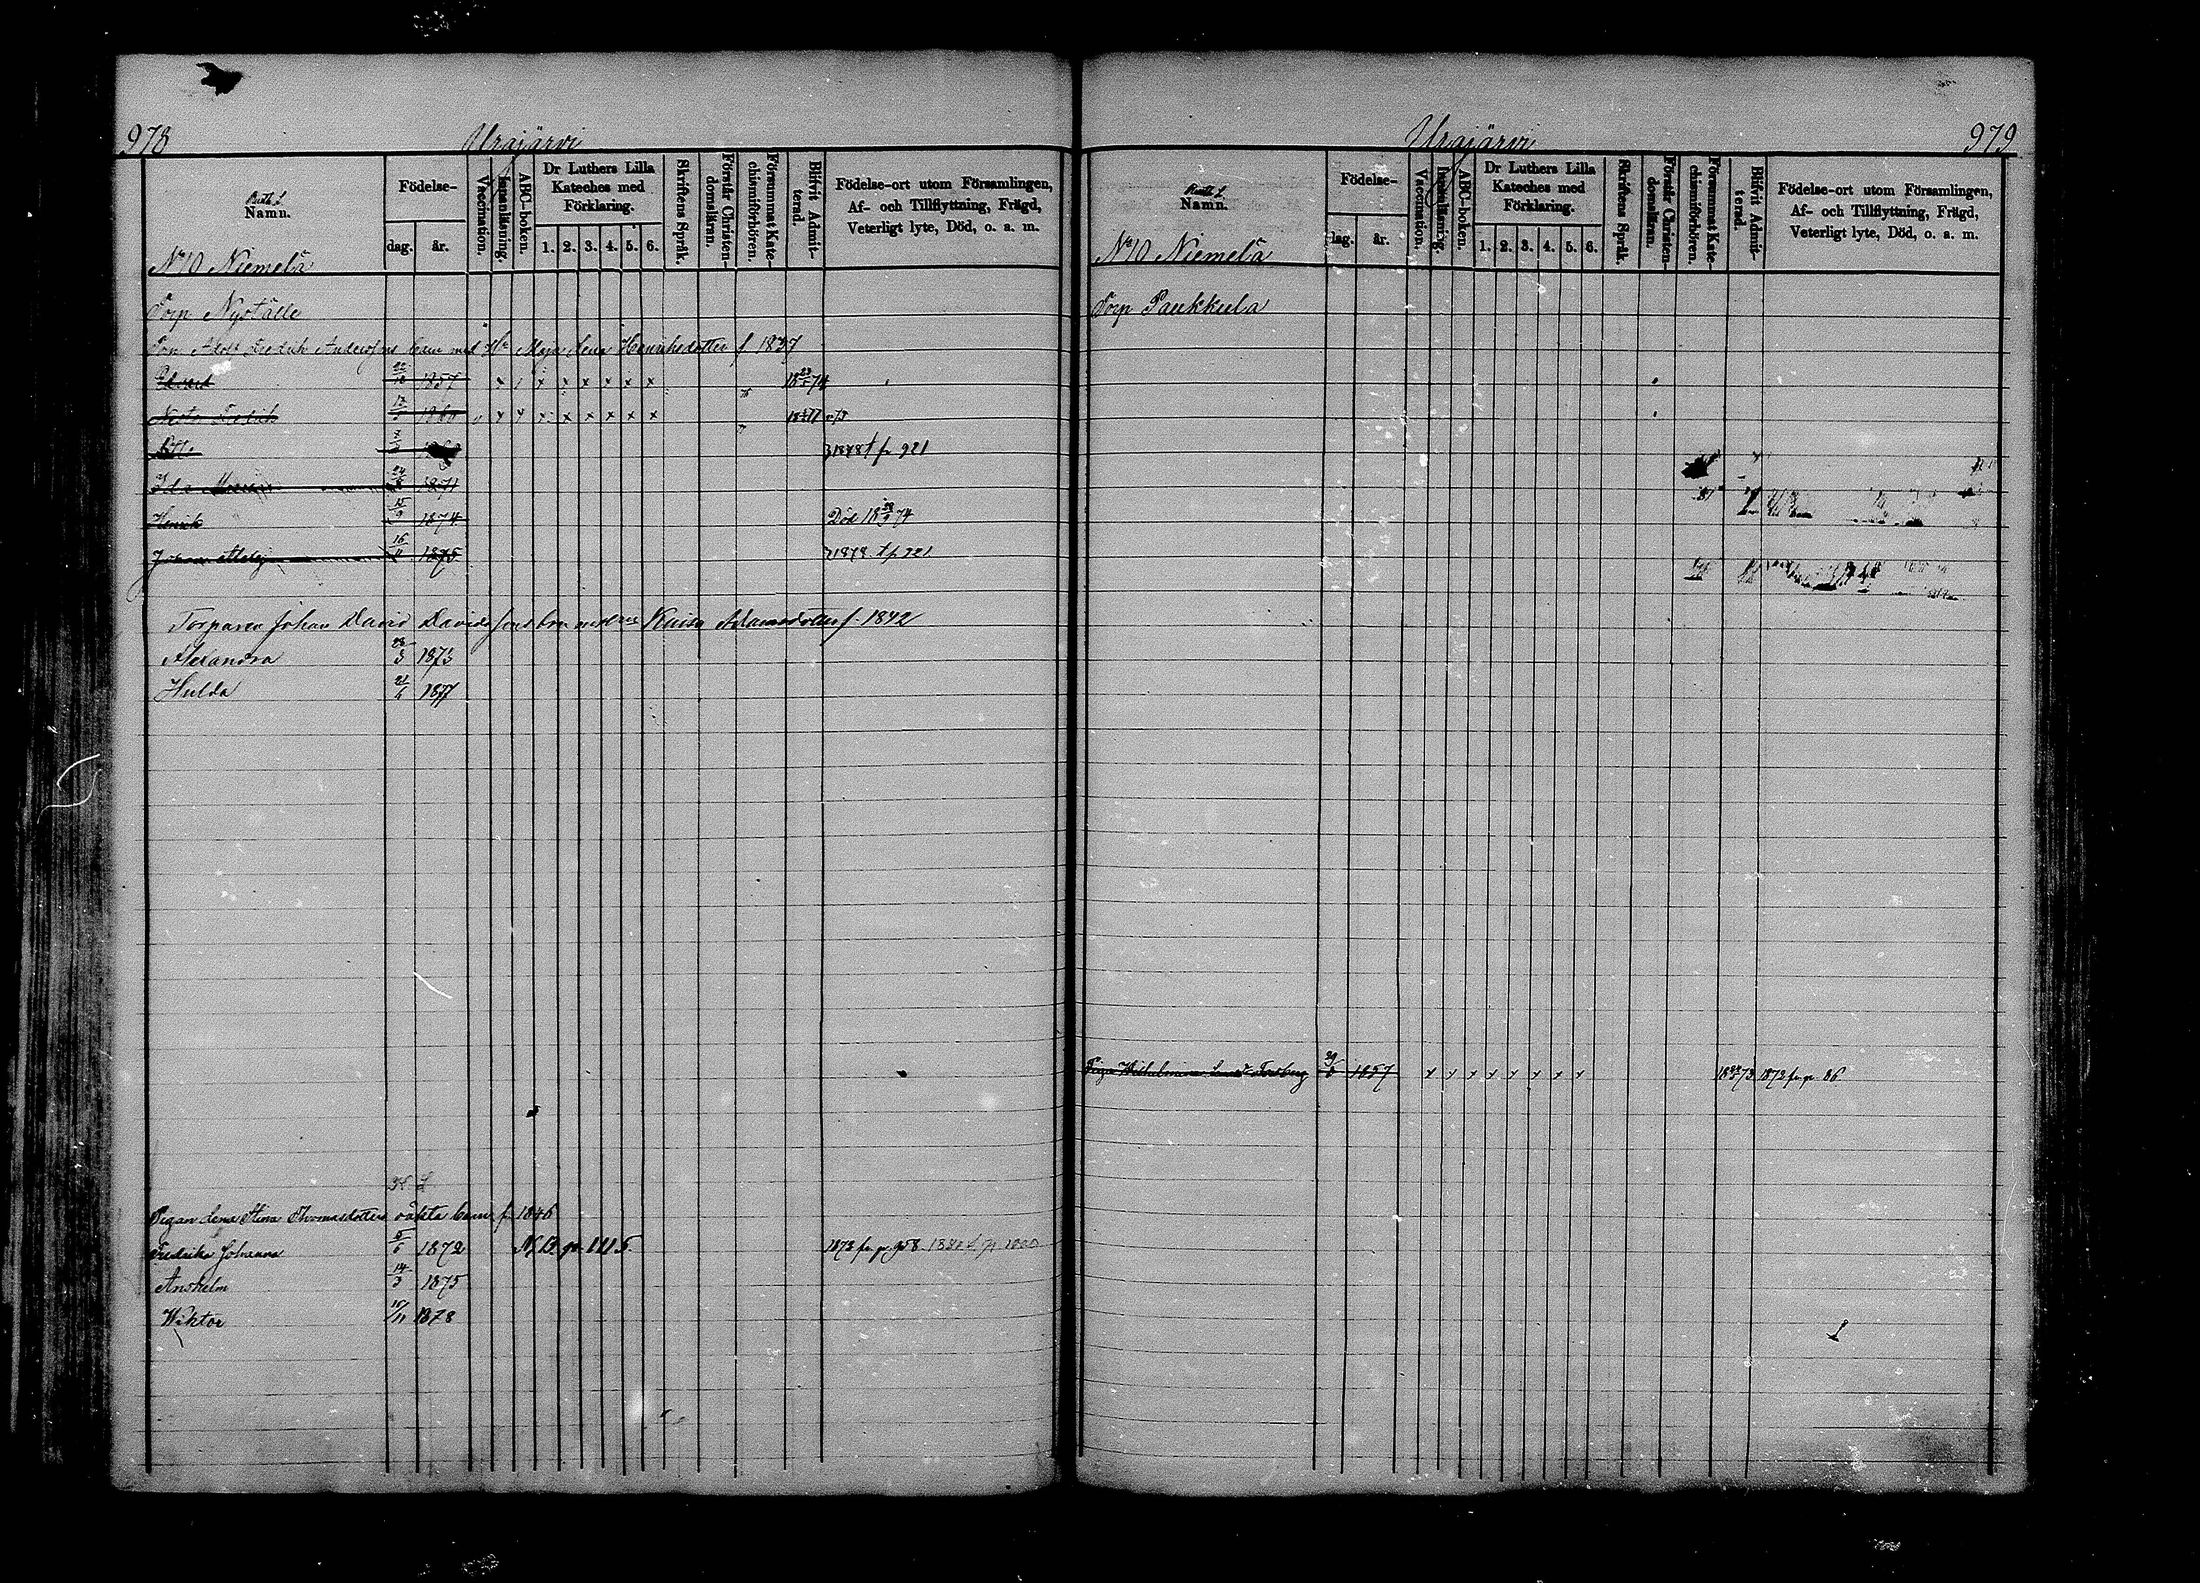 978
Urajärvi
Namn.
Födelse-
dag.
år.
Vaccination.
Innanläsning.
ABC-boken.
Dr Luthers Lilla Kateches med Förklaring.
1. 2. 3. 4. 5. 6.
Skriftens Språk.
Förstår Christendomsläran.
Försummat Katechismiförhören.
Blifvit Admitterad.
Födelse-ort utom Församlingen,
Af- och Tillflyttning, Frägd,
Veterligt lyte, Död, o. a. m.
No 10 Niemelä
Torp Nyställe
Torp. Adolf Fredrik Anderssons barn med Hu Maja Lena Henriksdotter f 1837
Edvard 1857 x x x x x x x
Fredrik 1860 x x x x x x x x
Otto 1878 t p 921
Ida Maria 24 1871
Henrik 15 1874 Död 18 74
Johan 16/11 1875 1878 t p 921
Torparen Johan David Davidssons barn med hu Kaisa Adamsdotter f. 1842
Alexandra 28/3 1873
Hulda 21/6 1877
Pigan Lena Stina Thomasdotters oäkta barn f. 1846
Fredrika Johanna 5/5 1872 N.B. pg. 1115. 1873 fr. pg. 958
Anshelm 14/3 1875
Wiktor 15/11 1878
979
Urajärvi
Namn.
Födelse-
dag.
år.
Vaccination.
Innanläsning.
ABC-boken.
Dr Luthers Lilla Kateches med Förklaring.
1. 2. 3. 4. 5. 6.
Skriftens Språk.
Förstår Christendomsläran.
Försummat Katechismiförhören.
Blifvit Admitterad.
Födelse-ort utom Församlingen,
Af- och Tillflyttning, Frägd,
Veterligt lyte, Död, o. a. m.
No 10 Niemelä
Torp Paukkula
Piga Wilhelmina Forsberg 29/5 1857 x x x x x x x x 1873 fr. pg. 86